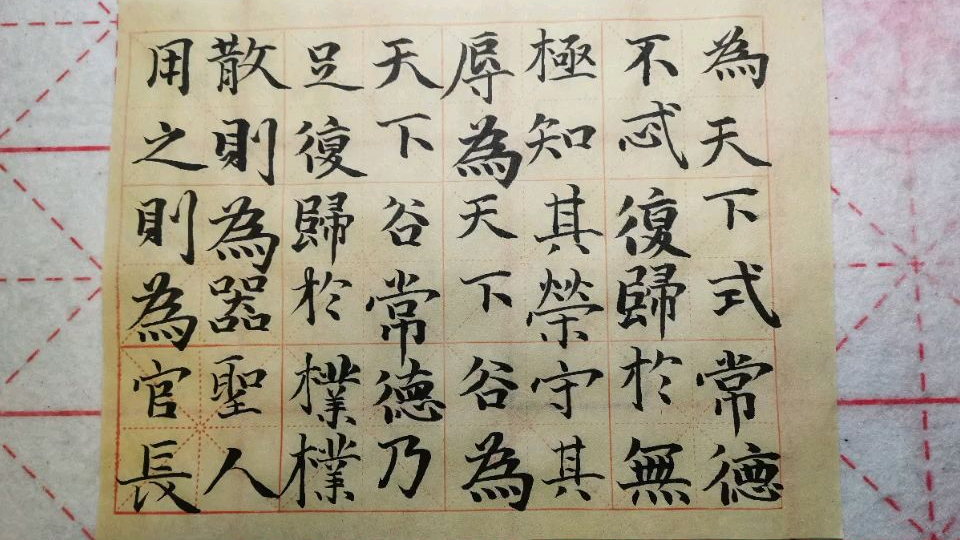 為天下式常德
不忒復歸於無
極知其榮守其
辱為天下谷為
天下谷常德乃
足復歸於樸樸
散則為器聖人
用之則為官長